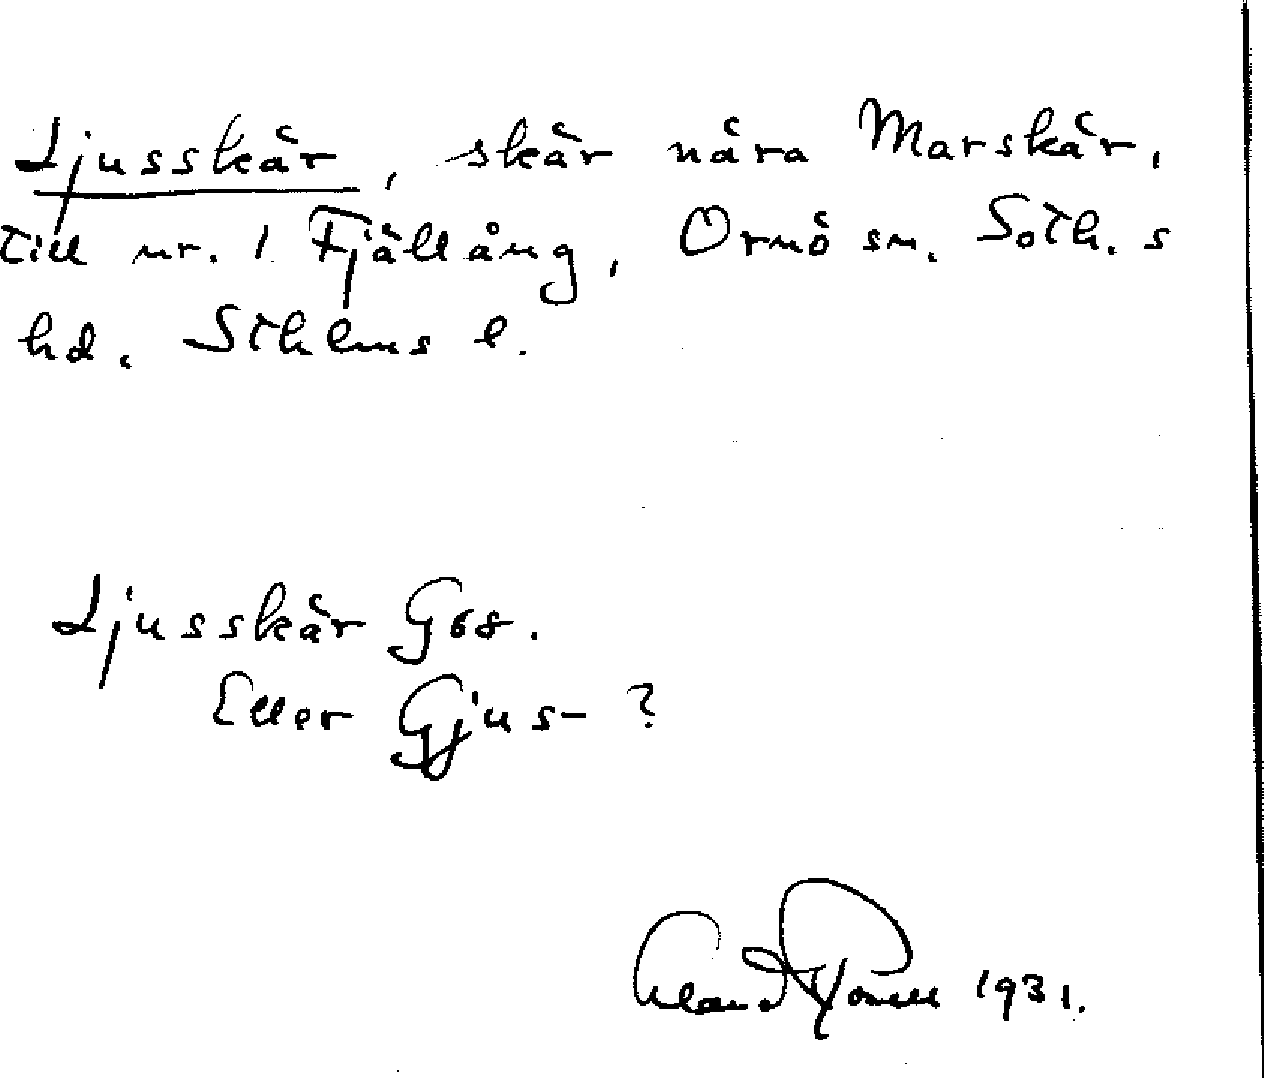 Ljusskär, skär nära Marskär,
till nr. 1 Fjällång, Ornö sn. Soth. s
hd. Sthlms l.
Ljusskär G68.
Eller Gjus- ?
1931.